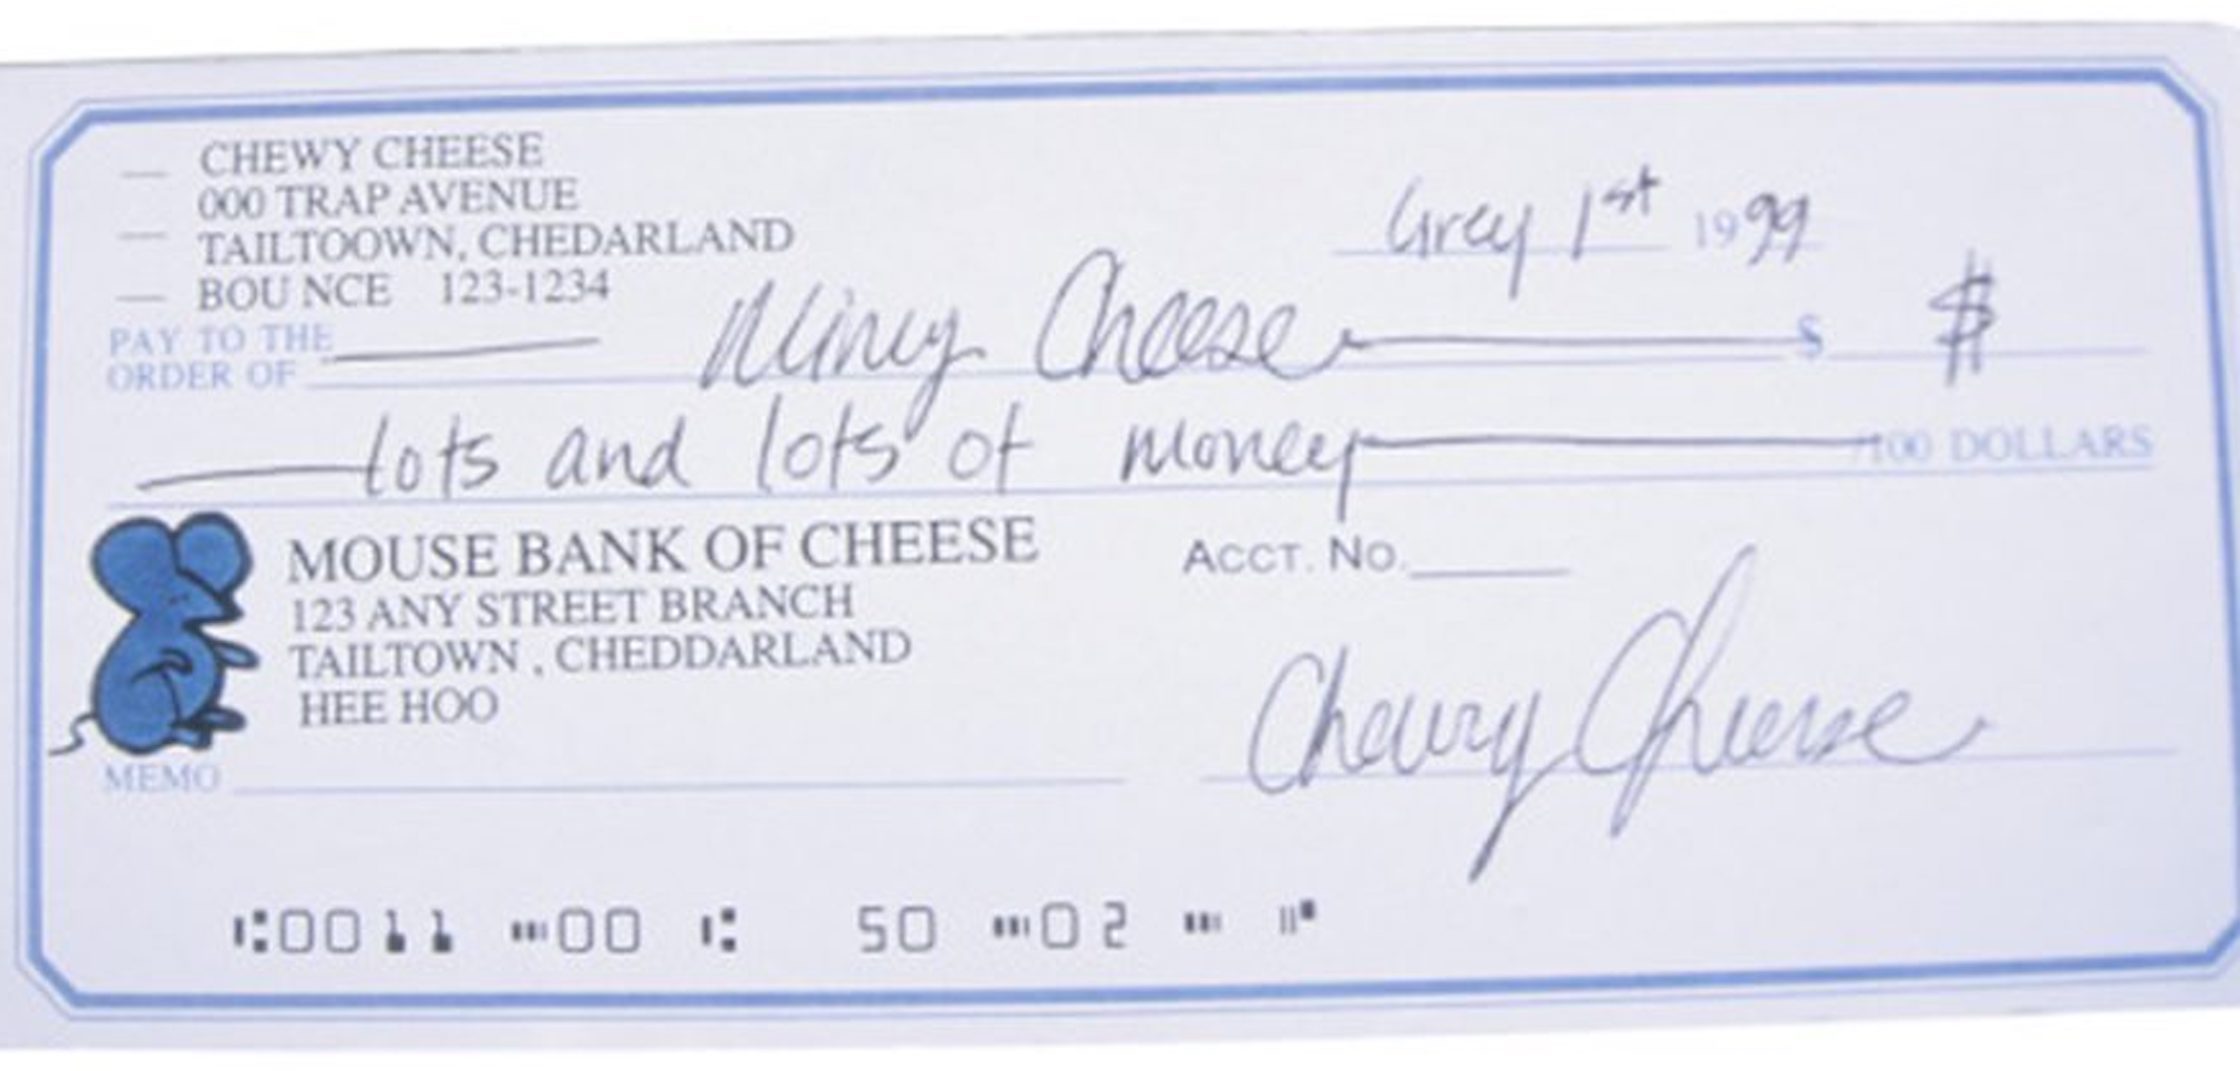 CHEWY CHEESE
000 TRAP AVENUE
TAILTOOWN, CHEDARLAND
BOU NCE 123-1234
Grey 1st 1999
PAY TO THE
ORDER OF Cheese $ $
lots and lots of money /100 DOLLARS
MOUSE BANK OF CHEESE
123 ANY STREET BRANCH
TAILTOWN , CHEDDARLAND
HEE HOO
ACCT. NO.
MEMO
Chewy Cheese
⑆0011 ⑉00 ⑆ 50 ⑉02 ⑉ ⑈